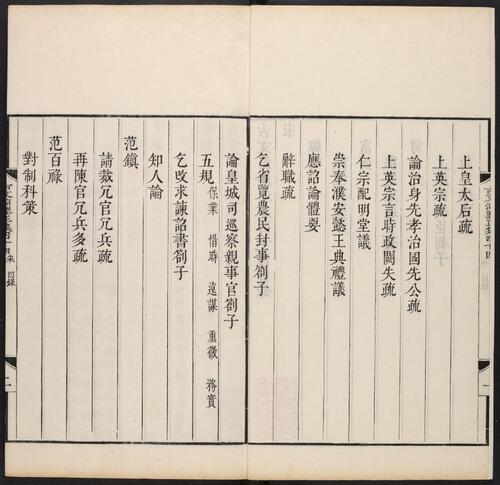 上皇太后疏
上英宗疏
論治身先孝治國先公疏
上英宗言時政闕失疏
仁宗配明堂議
崇奉濮安懿王典禮議
應詔論體要
辭職疏
乞省覽農民封事劄子
論皇城司巡察親事官劄子
五規 保業 惜時 遠謀 重微 務實
乞改求諫詔書劄子
知人論
范鎮
請裁冗官冗兵疏
再陳官冗兵多疏
范百祿
對制科策
目錄
二